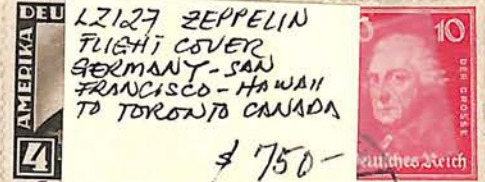 DEU
AMERIKA
4
LZ127 ZEPPELIN
FLIGHT COVER
GERMANY-SAN
FRANCISCO-HAWAII
TO TORONTO CANADA
$ 750-
10
DER GROSSE
Deutsches Reich